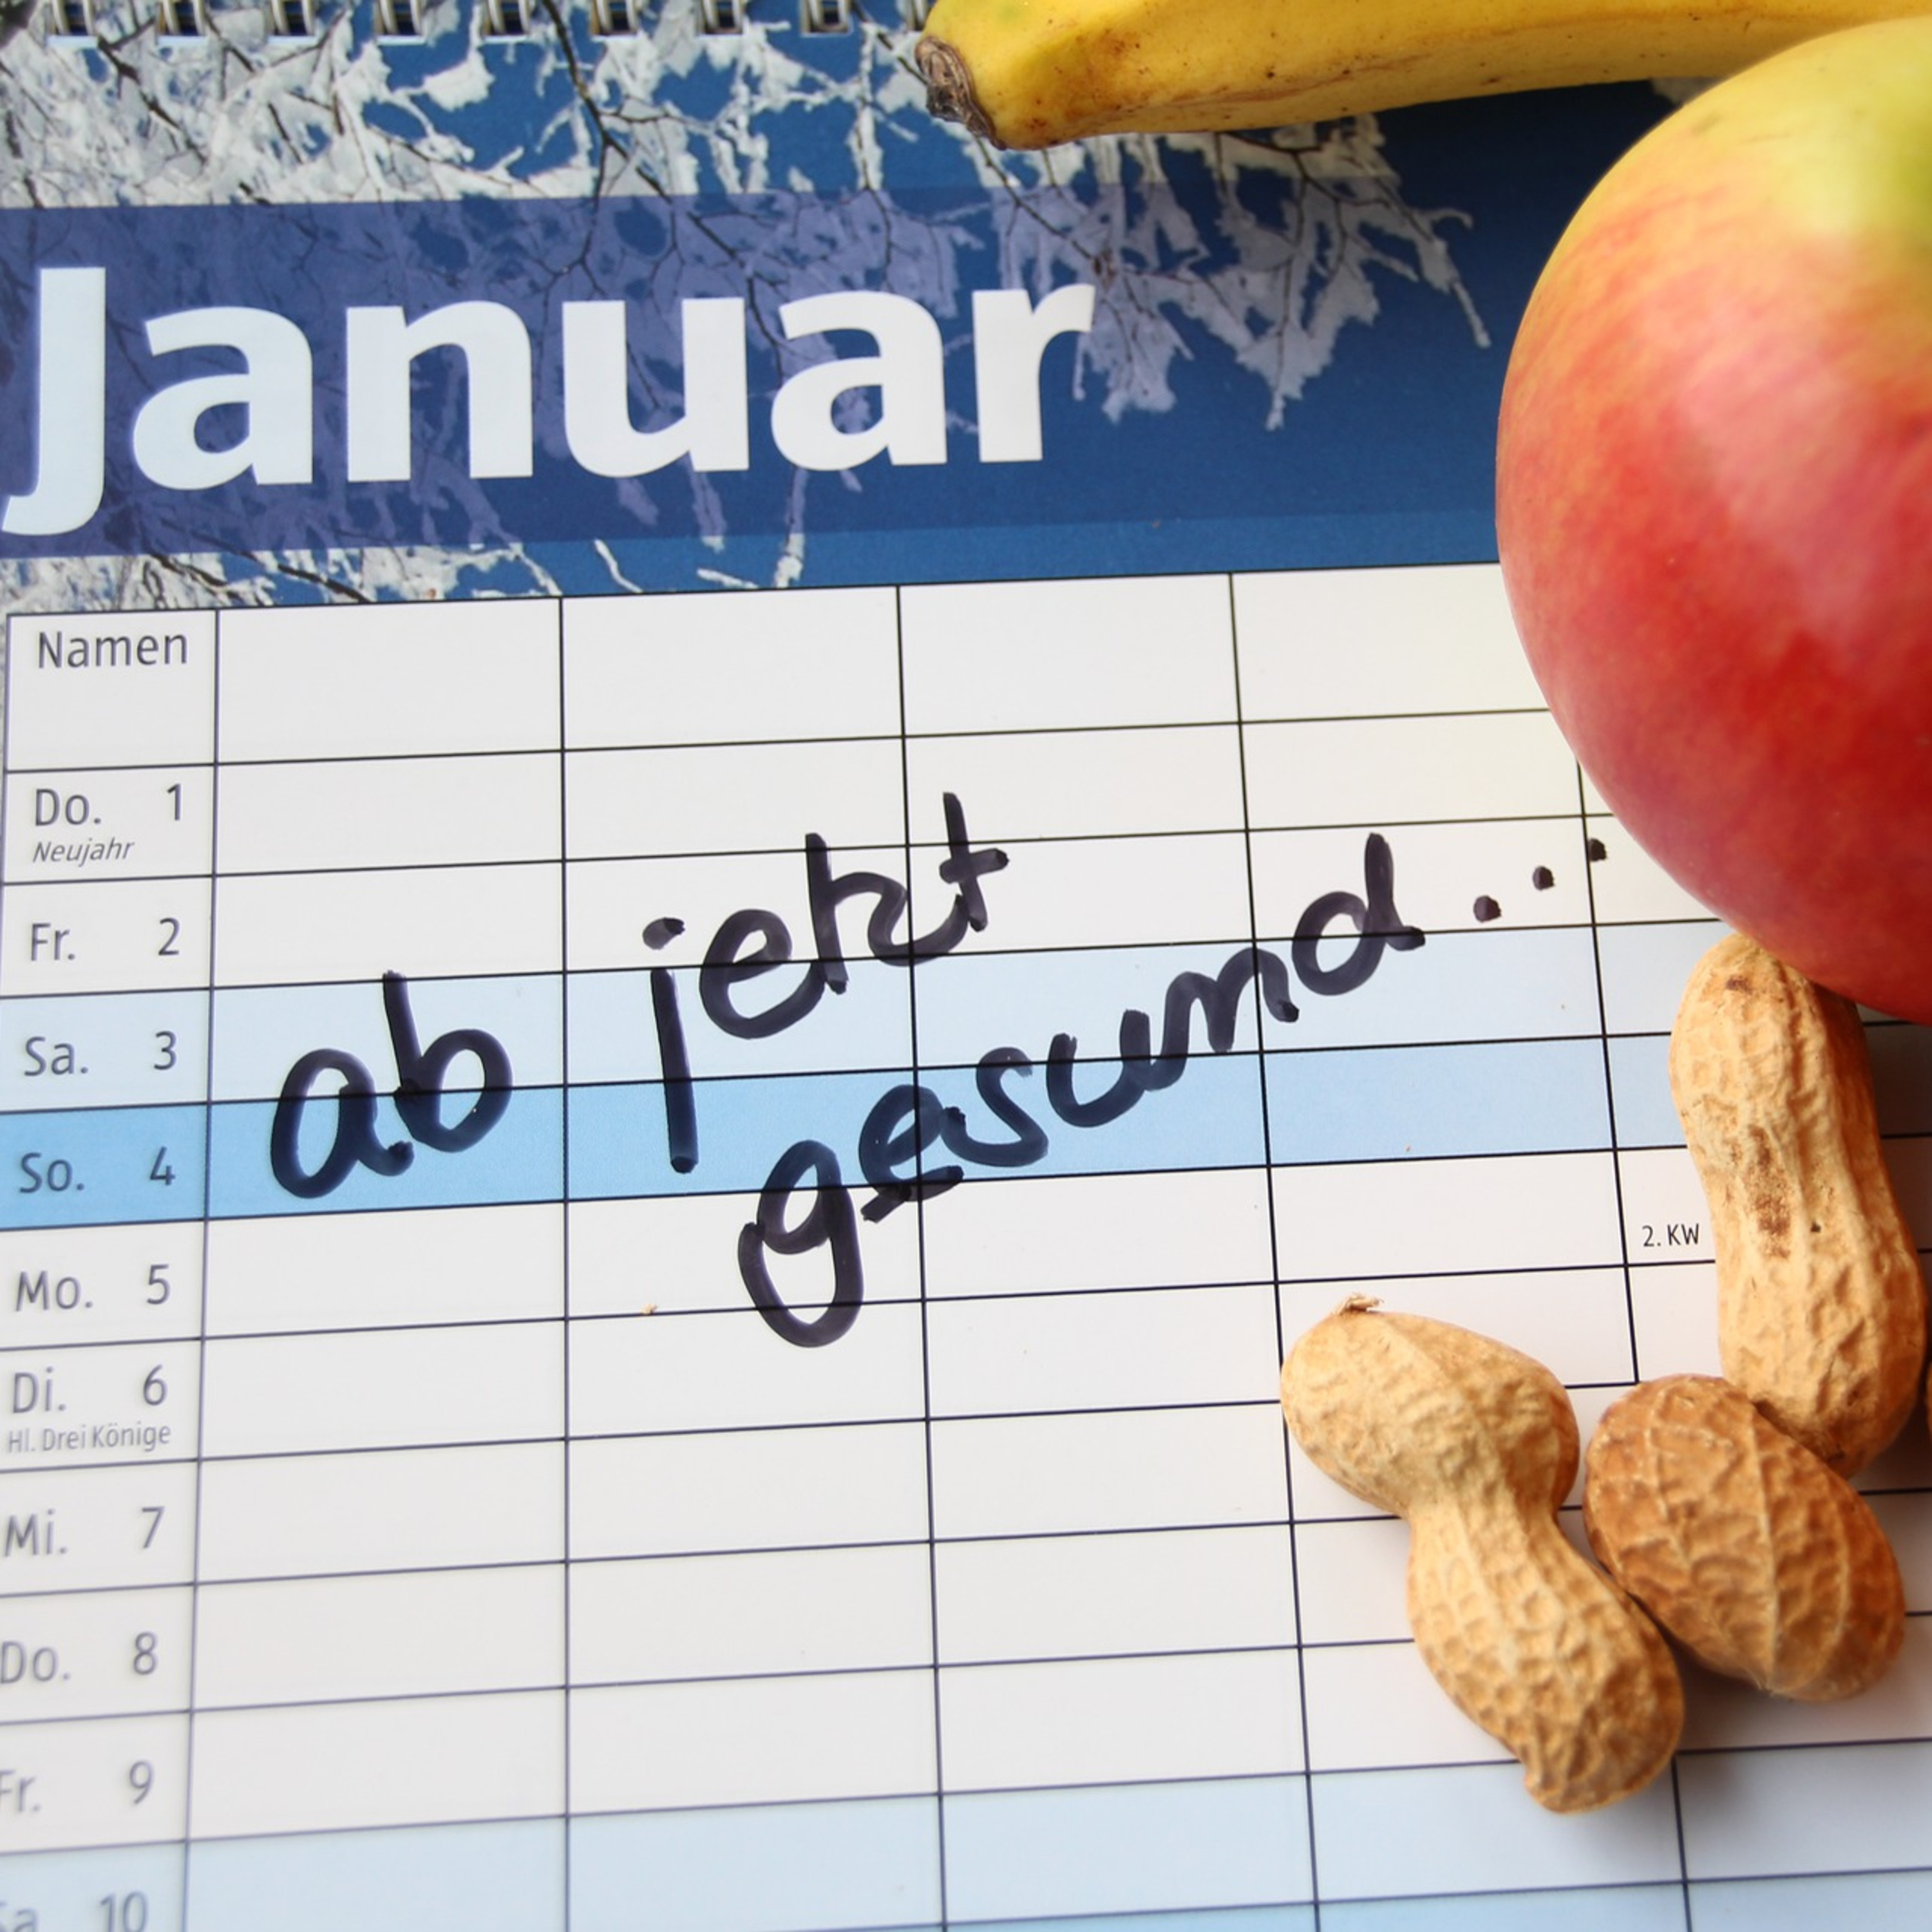 Januar
Namen
Do. 1
Neujahr
Fr. 2
ab jetzt
Sa. 3
gesund...
So. 4
Mo. 5
2. KW
Di. 6
Hl. Drei Könige
Mi. 7
Do. 8
Fr. 9
Sa. 10